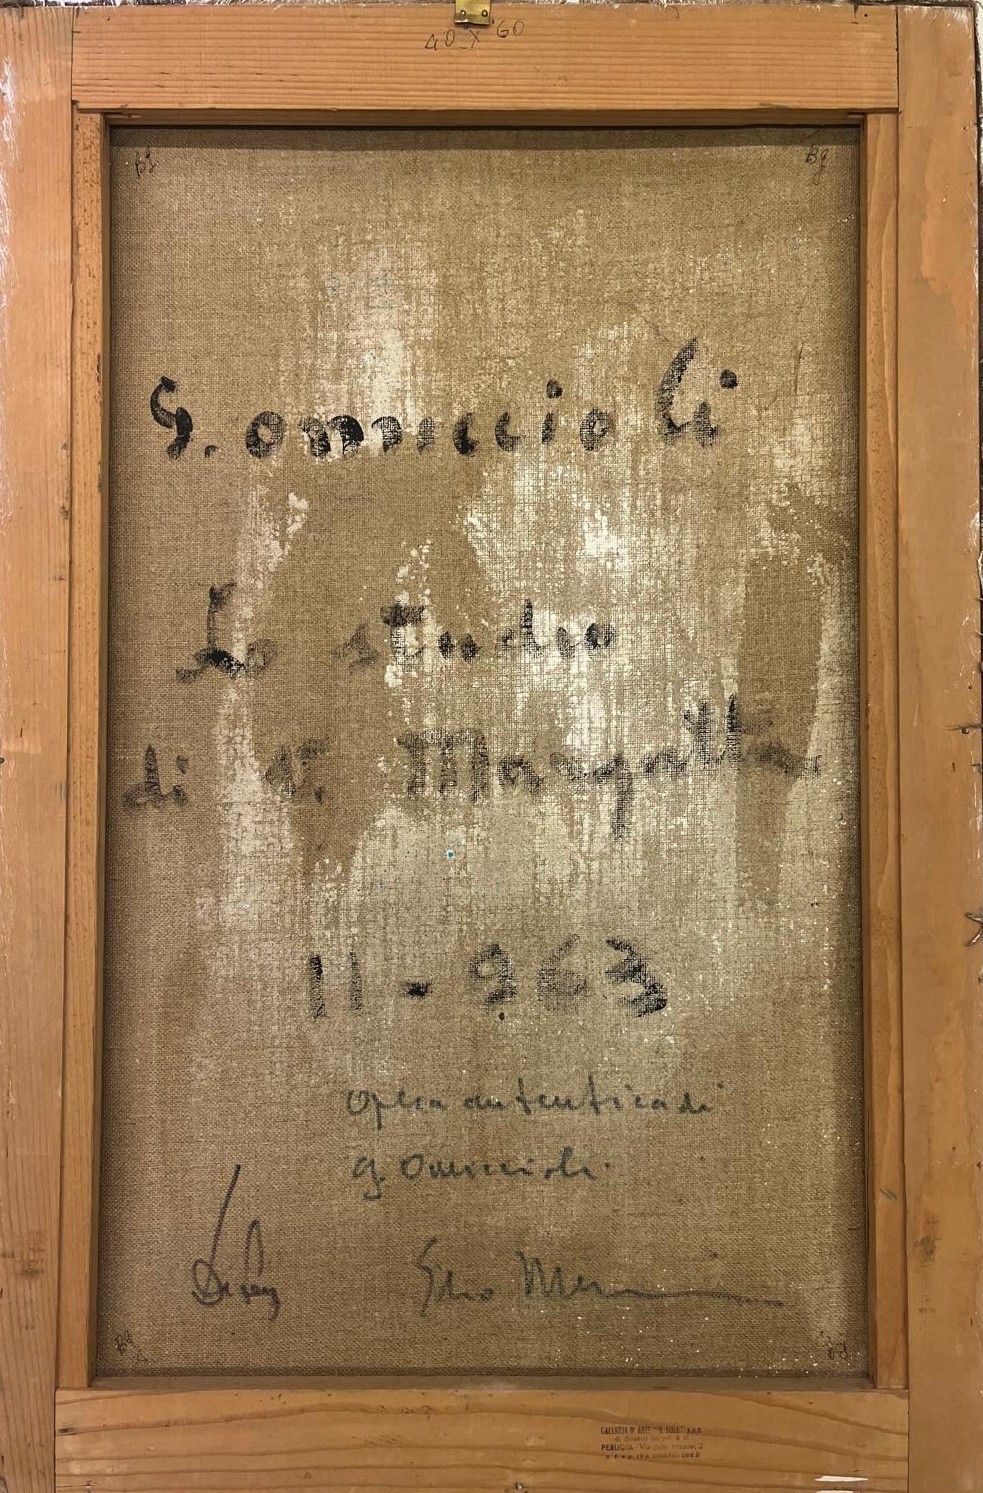 40 X 60
Bg
Bg
G. omiccioli
Lo studio
di V. Margutta
11-963
Opera autentica di
G. Omiccioli.
Bg
Bg
GALLERIA D'ARTE
PERUGIA - Via